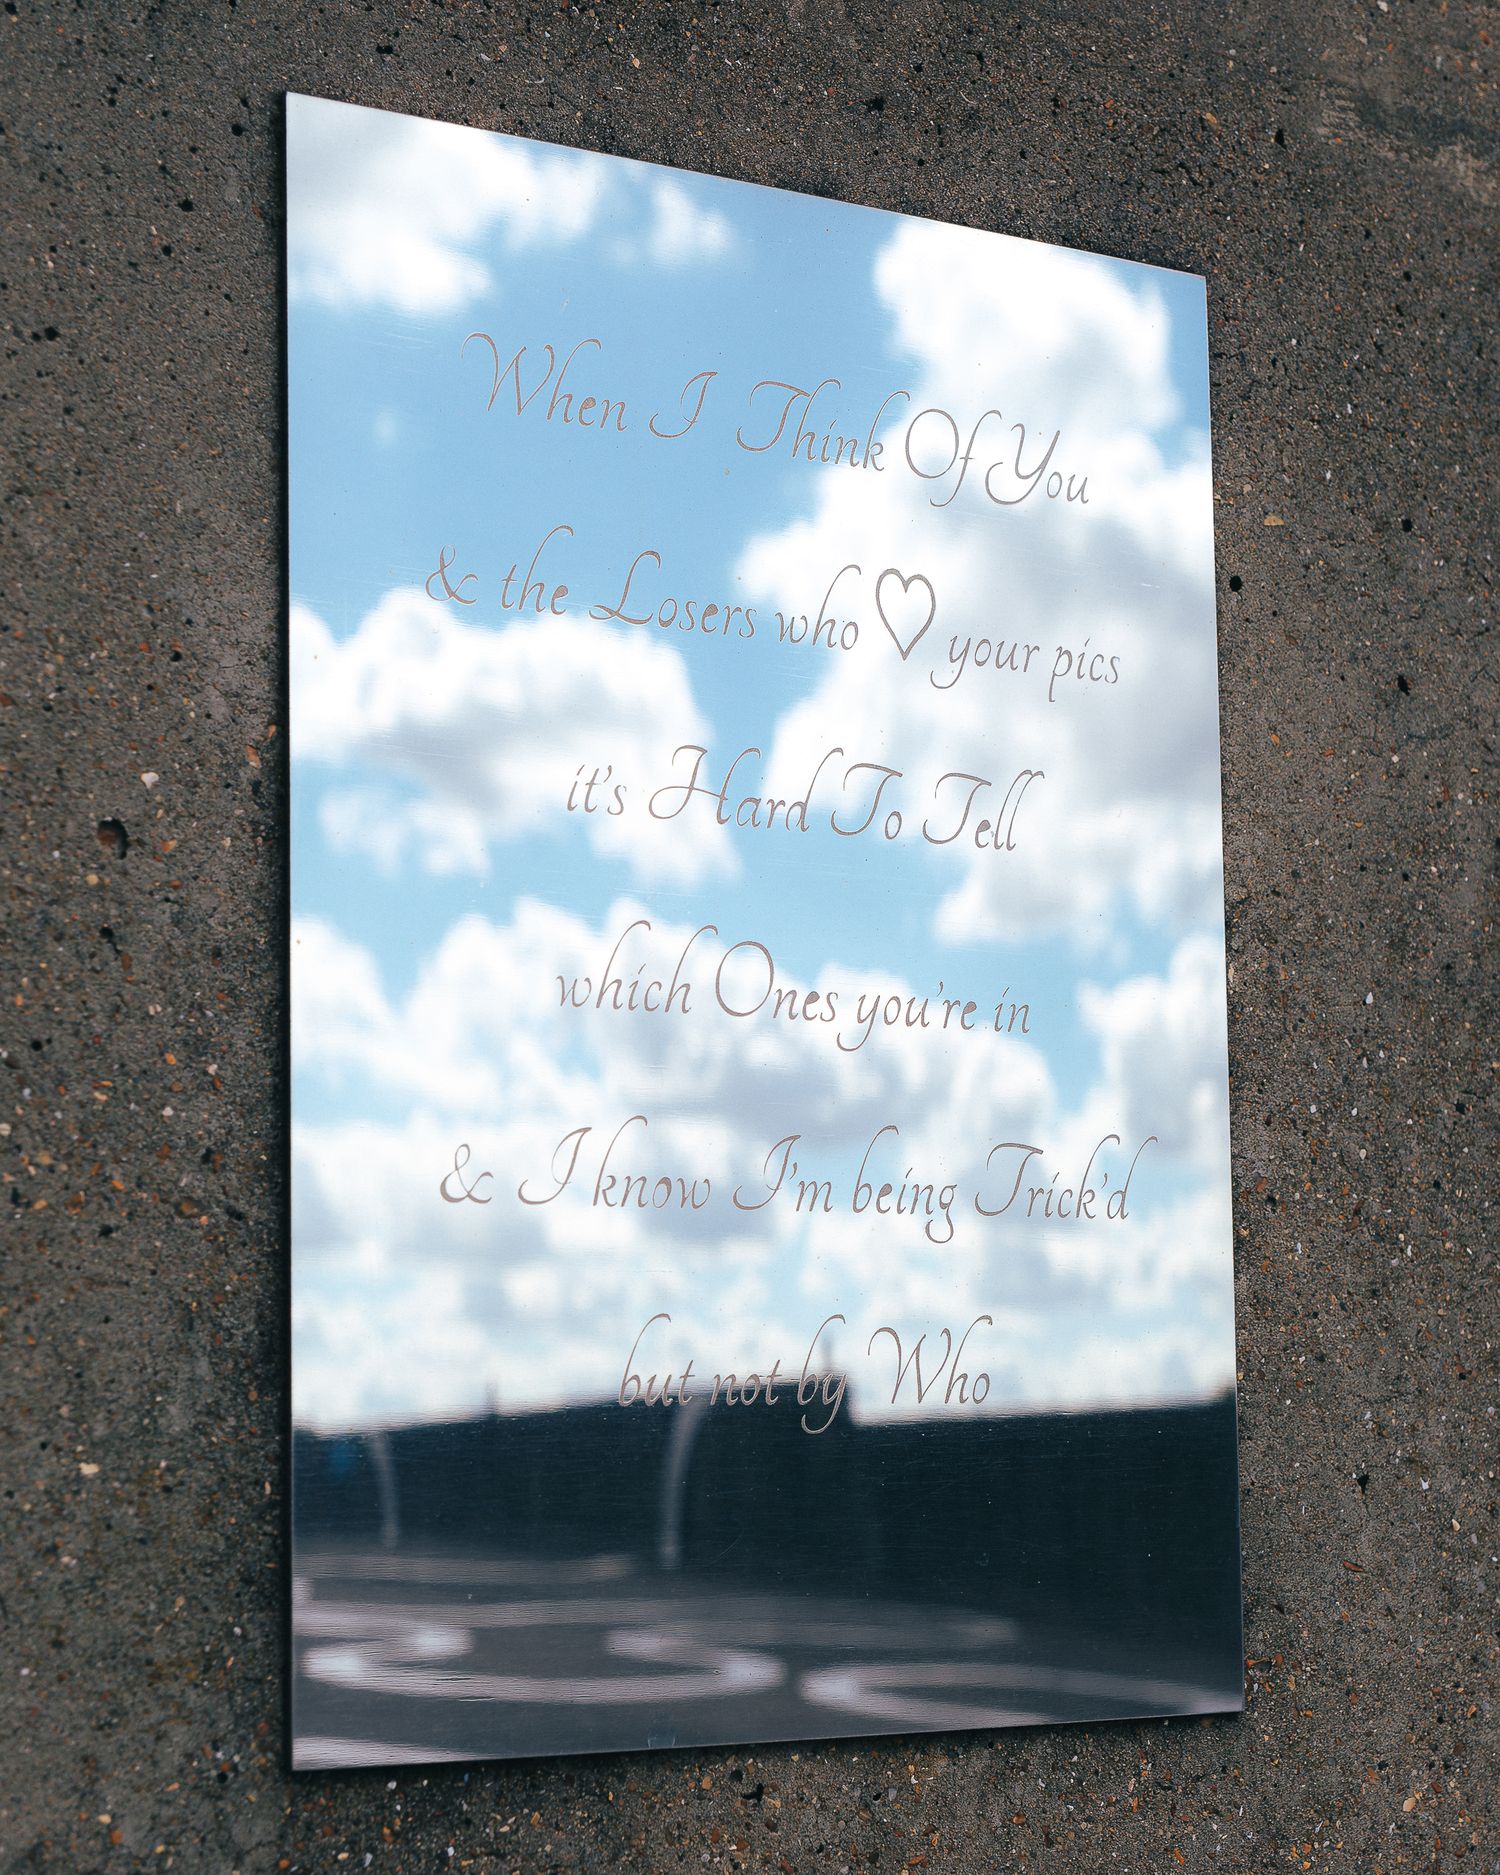 When I Think Of You
& the Losers who ♡ your pics
it's Hard To Tell
which Ones you're in
& I know I'm being Trick'd
but not by Who